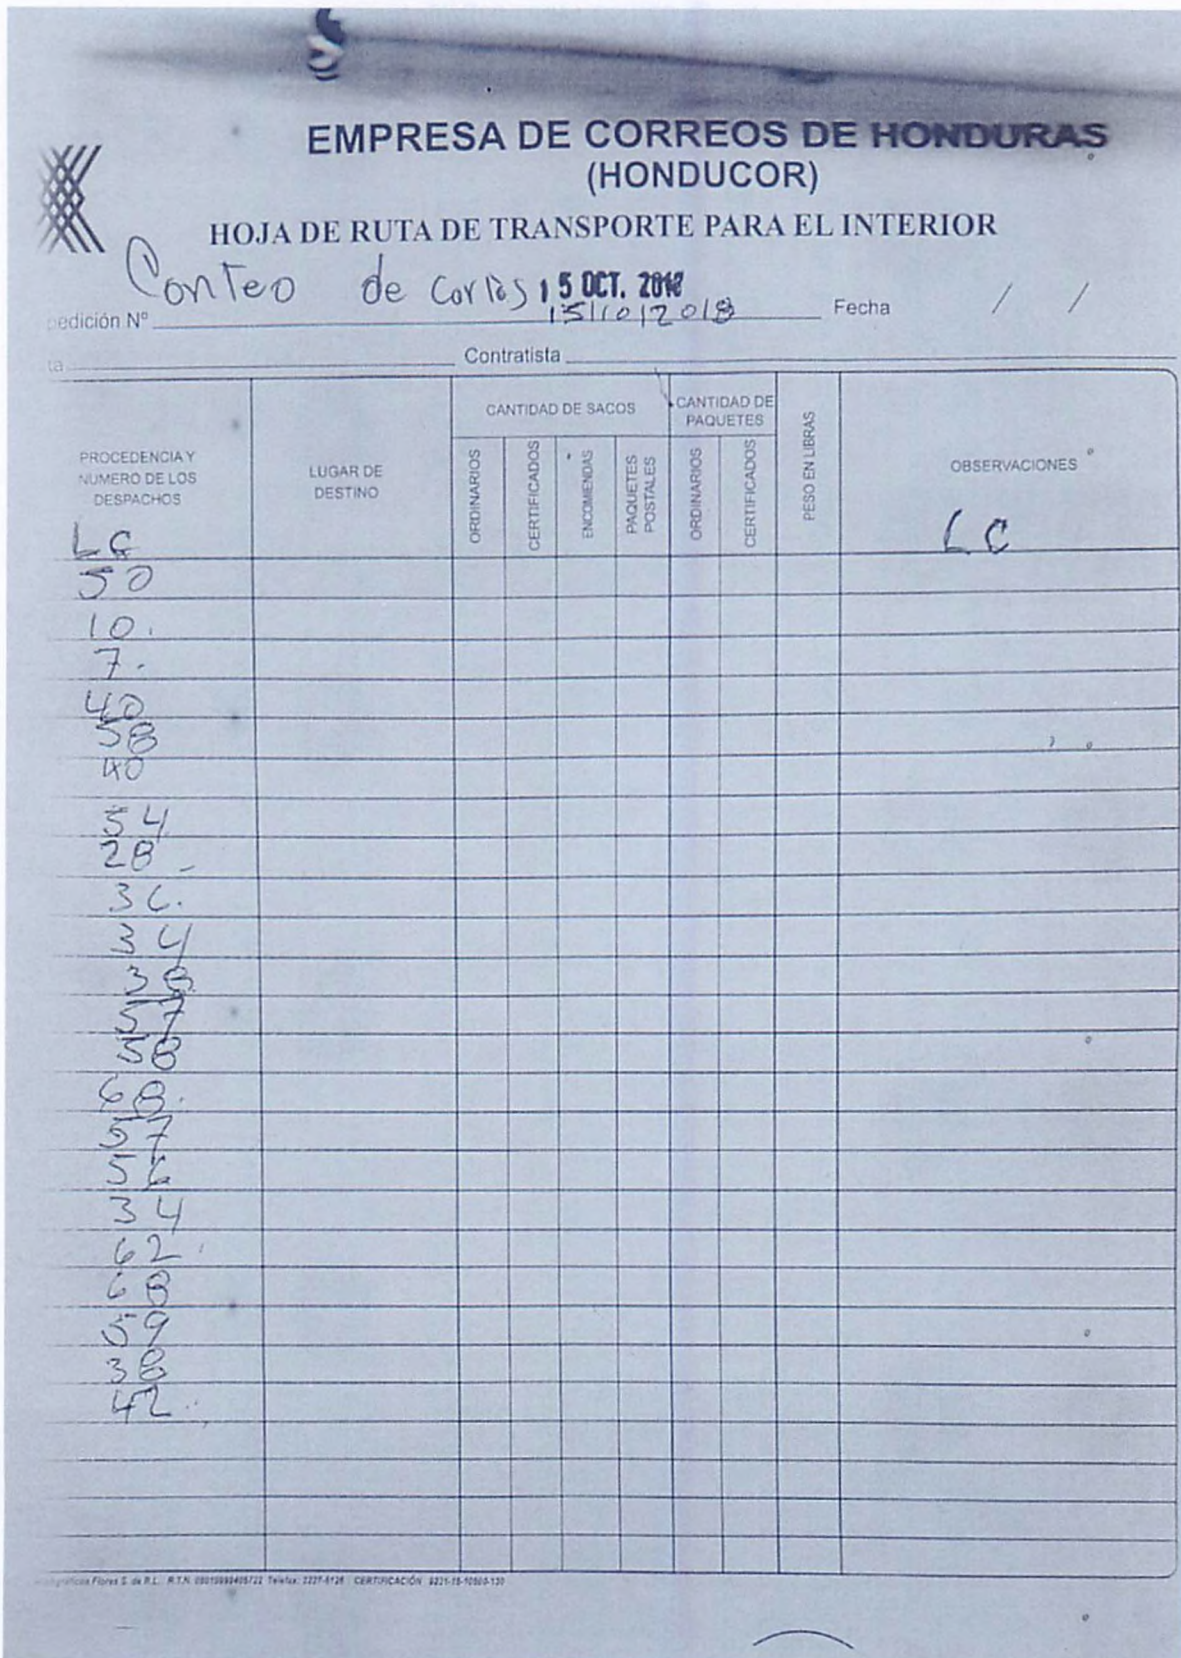 EMPRESA DE CORREOS DE HONDURAS
(HONDUCOR)
HOJA DE RUTA DE TRANSPORTE PARA EL INTERIOR
Conteo de 15 OCT. 2018
pedición Nº 15/10/2018 Fecha / /
ta Contratista
PROCEDENCIA Y NUMERO DE LOS DESPACHOS
LUGAR DE DESTINO
CANTIDAD DE SACOS
ORDINARIOS
CERTIFICADOS
ENCOMIENDAS
PAQUETES POSTALES
CANTIDAD DE PAQUETES
ORDINARIOS
CERTIFICADOS
PESO EN LIBRAS
OBSERVACIONES
LC
LC
50
10.
7.
40
58
40
54
28
36.
34
38
57
58
68.
57
56
34
62
68
59
38
42
Flores S. de R.L. R.T.N.
CERTIFICACIÓN